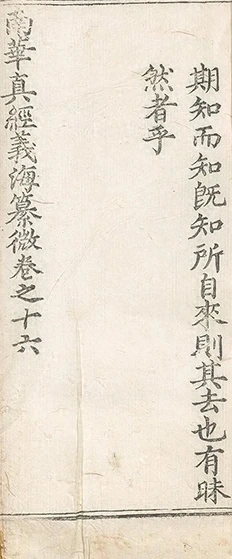 期知而知既知所自來則其去也有昧
然者乎
南華真經義海纂微卷之十六